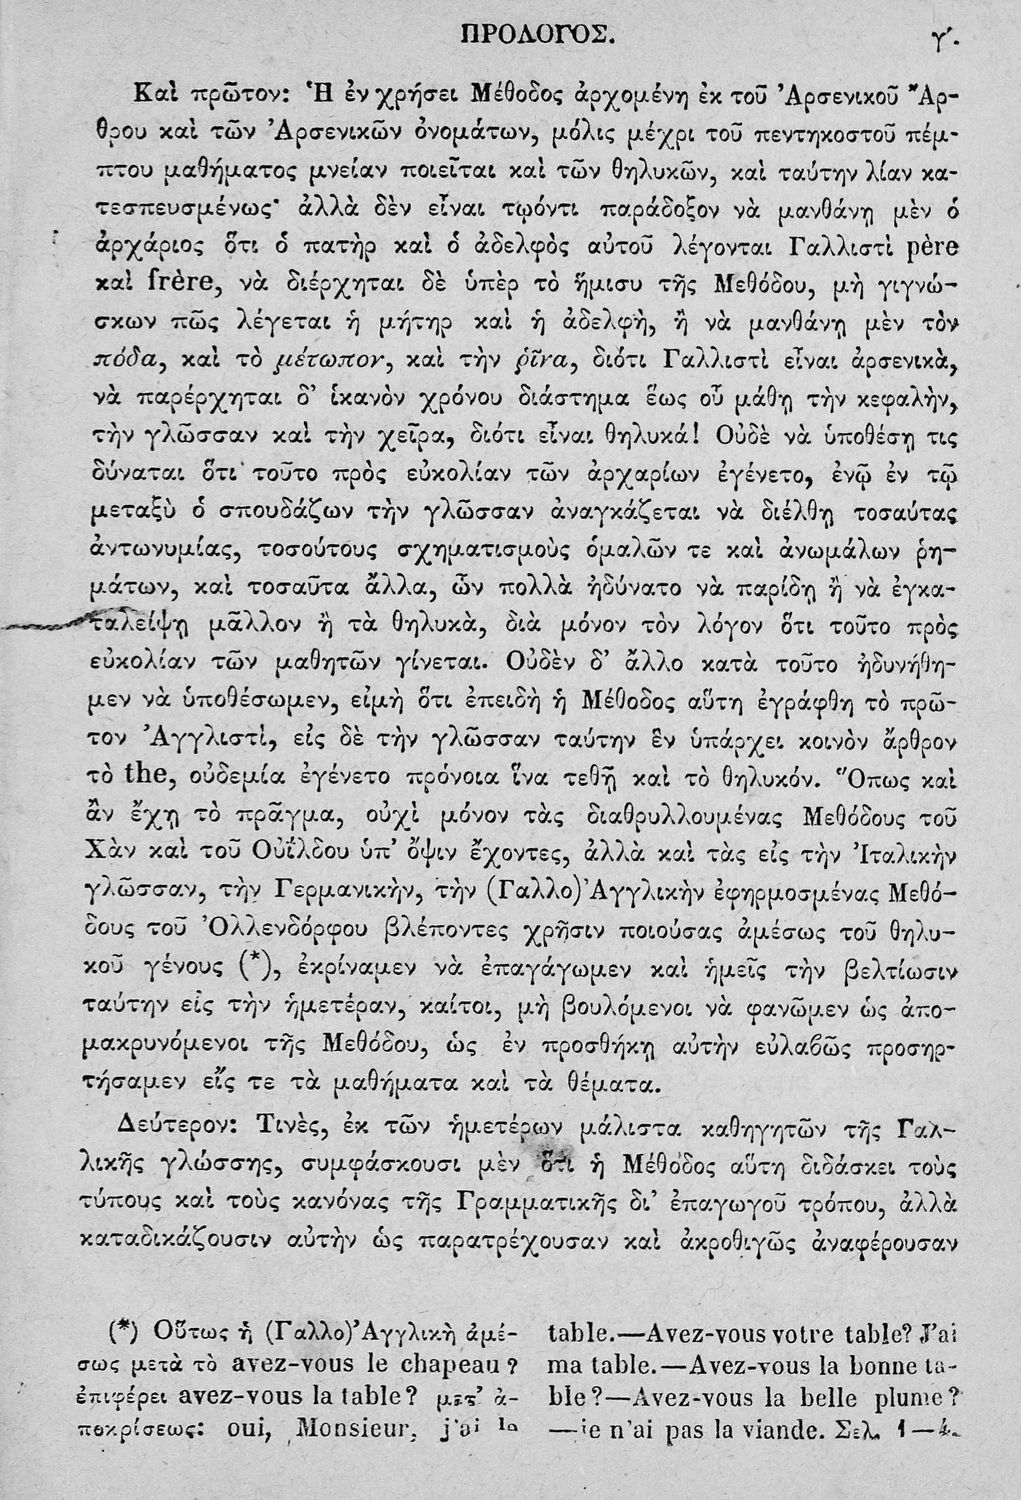 ΠΡΟΛΟΓΟΣ. γʹ.
Καὶ πρῶτον: Ἡ ἐν χρήσει Μέθοδος ἀρχομένη ἐκ τοῦ Ἀρσενικοῦ Ἄρ-
θρου καὶ τῶν Ἀρσενικῶν ὀνομάτων, μόλις μέχρι τοῦ πεντηκοστοῦ πέμ-
πτου μαθήματος μνείαν ποιεῖται καὶ τῶν θηλυκῶν, καὶ ταύτην λίαν κα-
τεσπευσμένως· ἀλλὰ δὲν εἶναι τῳόντι παράδοξον νὰ μανθάνῃ μὲν ὁ
ἀρχάριος ὅτι ὁ πατὴρ καὶ ὁ ἀδελφὸς αὐτοῦ λέγονται Γαλλιστὶ père
καὶ frère, νὰ διέρχηται δὲ ὑπὲρ τὸ ἥμισυ τῆς Μεθόδου, μὴ γιγνώ-
σκων πῶς λέγεται ἡ μήτηρ καὶ ἡ ἀδελφὴ, ἢ νὰ μανθάνῃ μὲν τὸν
πόδα, καὶ τὸ μέτωπον, καὶ τὴν ῥῖνα, διότι Γαλλιστὶ εἶναι ἀρσενικὰ,
νὰ παρέρχηται δ’ ἱκανὸν χρόνου διάστημα ἕως οὗ μάθῃ τὴν κεφαλὴν,
τὴν γλῶσσαν καὶ τὴν χεῖρα, διότι εἶναι θηλυκά! Οὐδὲ νὰ ὑποθέσῃ τις
δύναται ὅτι τοῦτο πρὸς εὐκολίαν τῶν ἀρχαρίων ἐγένετο, ἐνῷ ἐν τῷ
μεταξὺ ὁ σπουδάζων τὴν γλῶσσαν ἀναγκάζεται νὰ διέλθῃ τοσαύτας
ἀντωνυμίας, τοσούτους σχηματισμοὺς ὁμαλῶν τε καὶ ἀνωμάλων ῥη-
μάτων, καὶ τοσαῦτα ἄλλα, ὧν πολλὰ ἠδύνατο νὰ παρίδῃ ἢ νὰ ἐγκα-
ταλείψῃ μᾶλλον ἢ τὰ θηλυκὰ, διὰ μόνον τὸν λόγον ὅτι τοῦτο πρὸς
εὐκολίαν τῶν μαθητῶν γίνεται. Οὐδὲν δ’ ἄλλο κατὰ τοῦτο ἠδυνήθη-
μεν νὰ ὑποθέσωμεν, εἰμὴ ὅτι ἐπειδὴ ἡ Μέθοδος αὕτη ἐγράφθη τὸ πρῶ-
τον Ἀγγλιστὶ, εἰς δὲ τὴν γλῶσσαν ταύτην ἓν ὑπάρχει κοινὸν ἄρθρον
τὸ the, οὐδεμία ἐγένετο πρόνοια ἵνα τεθῇ καὶ τὸ θηλυκόν. Ὅπως καὶ
ἂν ἔχῃ τὸ πρᾶγμα, οὐχὶ μόνον τὰς διαθρυλλουμένας Μεθόδους τοῦ
Χὰν καὶ τοῦ Οὐΐλδου ὑπ’ ὄψιν ἔχοντες, ἀλλὰ καὶ τὰς εἰς τὴν Ἰταλικὴν
γλῶσσαν, τὴν Γερμανικὴν, τὴν (Γαλλο)Ἀγγλικὴν ἐφηρμοσμένας Μεθό-
δους τοῦ Ὀλλενδόρφου βλέποντες χρῆσιν ποιούσας ἀμέσως τοῦ θηλυ-
κοῦ γένους (*), ἐκρίναμεν νὰ ἐπαγάγωμεν καὶ ἡμεῖς τὴν βελτίωσιν
ταύτην εἰς τὴν ἡμετέραν, καίτοι, μὴ βουλόμενοι νὰ φανῶμεν ὡς ἀπο-
μακρυνόμενοι τῆς Μεθόδου, ὡς ἐν προσθήκῃ αὐτὴν εὐλαβῶς προσηρ-
τήσαμεν εἴς τε τὰ μαθήματα καὶ τὰ θέματα.
Δεύτερον: Τινὲς, ἐκ τῶν ἡμετέρων μάλιστα καθηγητῶν τῆς Γαλ-
λικῆς γλώσσης, συμφάσκουσι μὲν ὅτι ἡ Μέθοδος αὕτη διδάσκει τοὺς
τύπους καὶ τοὺς κανόνας τῆς Γραμματικῆς δι’ ἐπαγωγοῦ τρόπου, ἀλλὰ
καταδικάζουσιν αὐτὴν ὡς παρατρέχουσαν καὶ ἀκροθιγῶς ἀναφέρουσαν
(*) Οὕτως ἡ (Γαλλο)Ἀγγλικὴ ἀμέ-
σως μετὰ τὸ avez-vous le chapeau?
ἐπιφέρει avez-vous la table? μετ’ ἀ-
ποκρίσεως: oui, Monsieur, j'ai la
table.—Avez-vous votre table? J'ai
ma table.—Avez-vous la bonne ta-
ble?—Avez-vous la belle plume?
—je n'ai pas la viande. Σελ. 1—4.